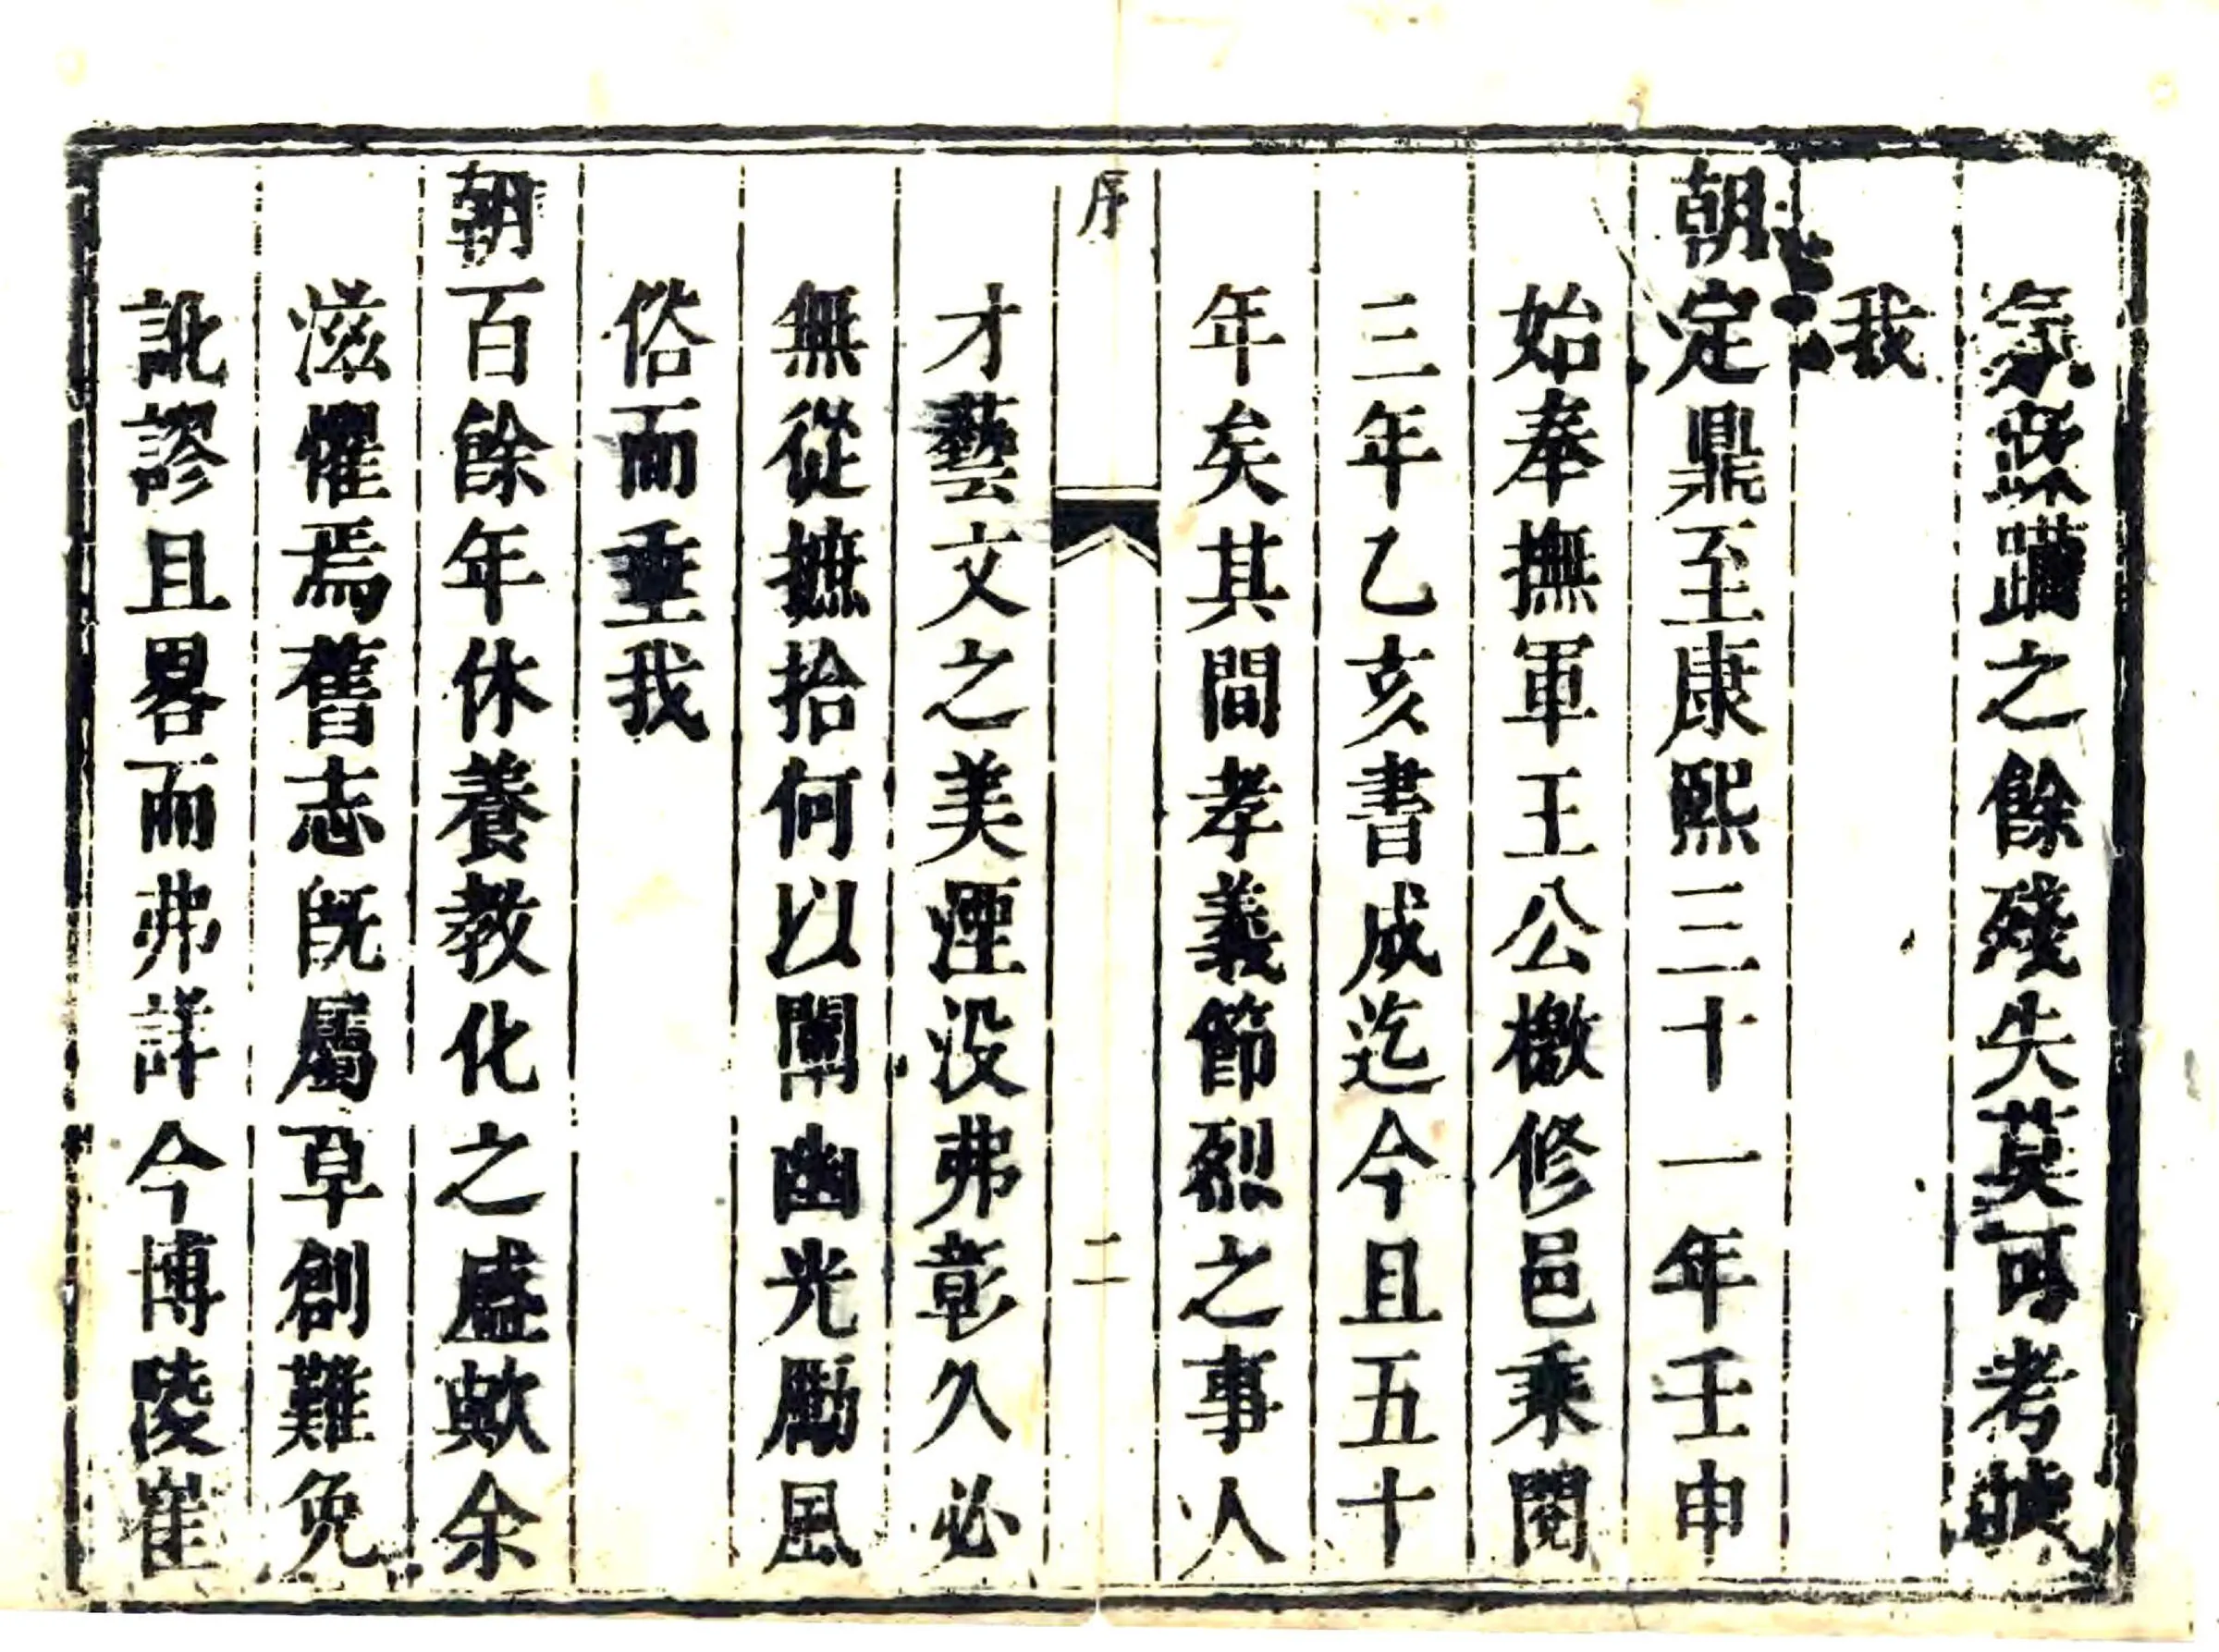 氛蹂躪之餘殘失莫可考
我
朝定鼎至康熙三十一年壬申
始奉撫軍王公檄修邑乘閱
三年乙亥書成迄今且五十
年矣其間孝義節烈之事人
序
二
才藝文之美湮没弗彰久必
無從摭拾何以闡幽光勵風
俗而重我
朝百餘年休養教化之盛歟余
滋懼焉舊志旣屬草創難免
訛謬且畧而弗詳今博陵崔